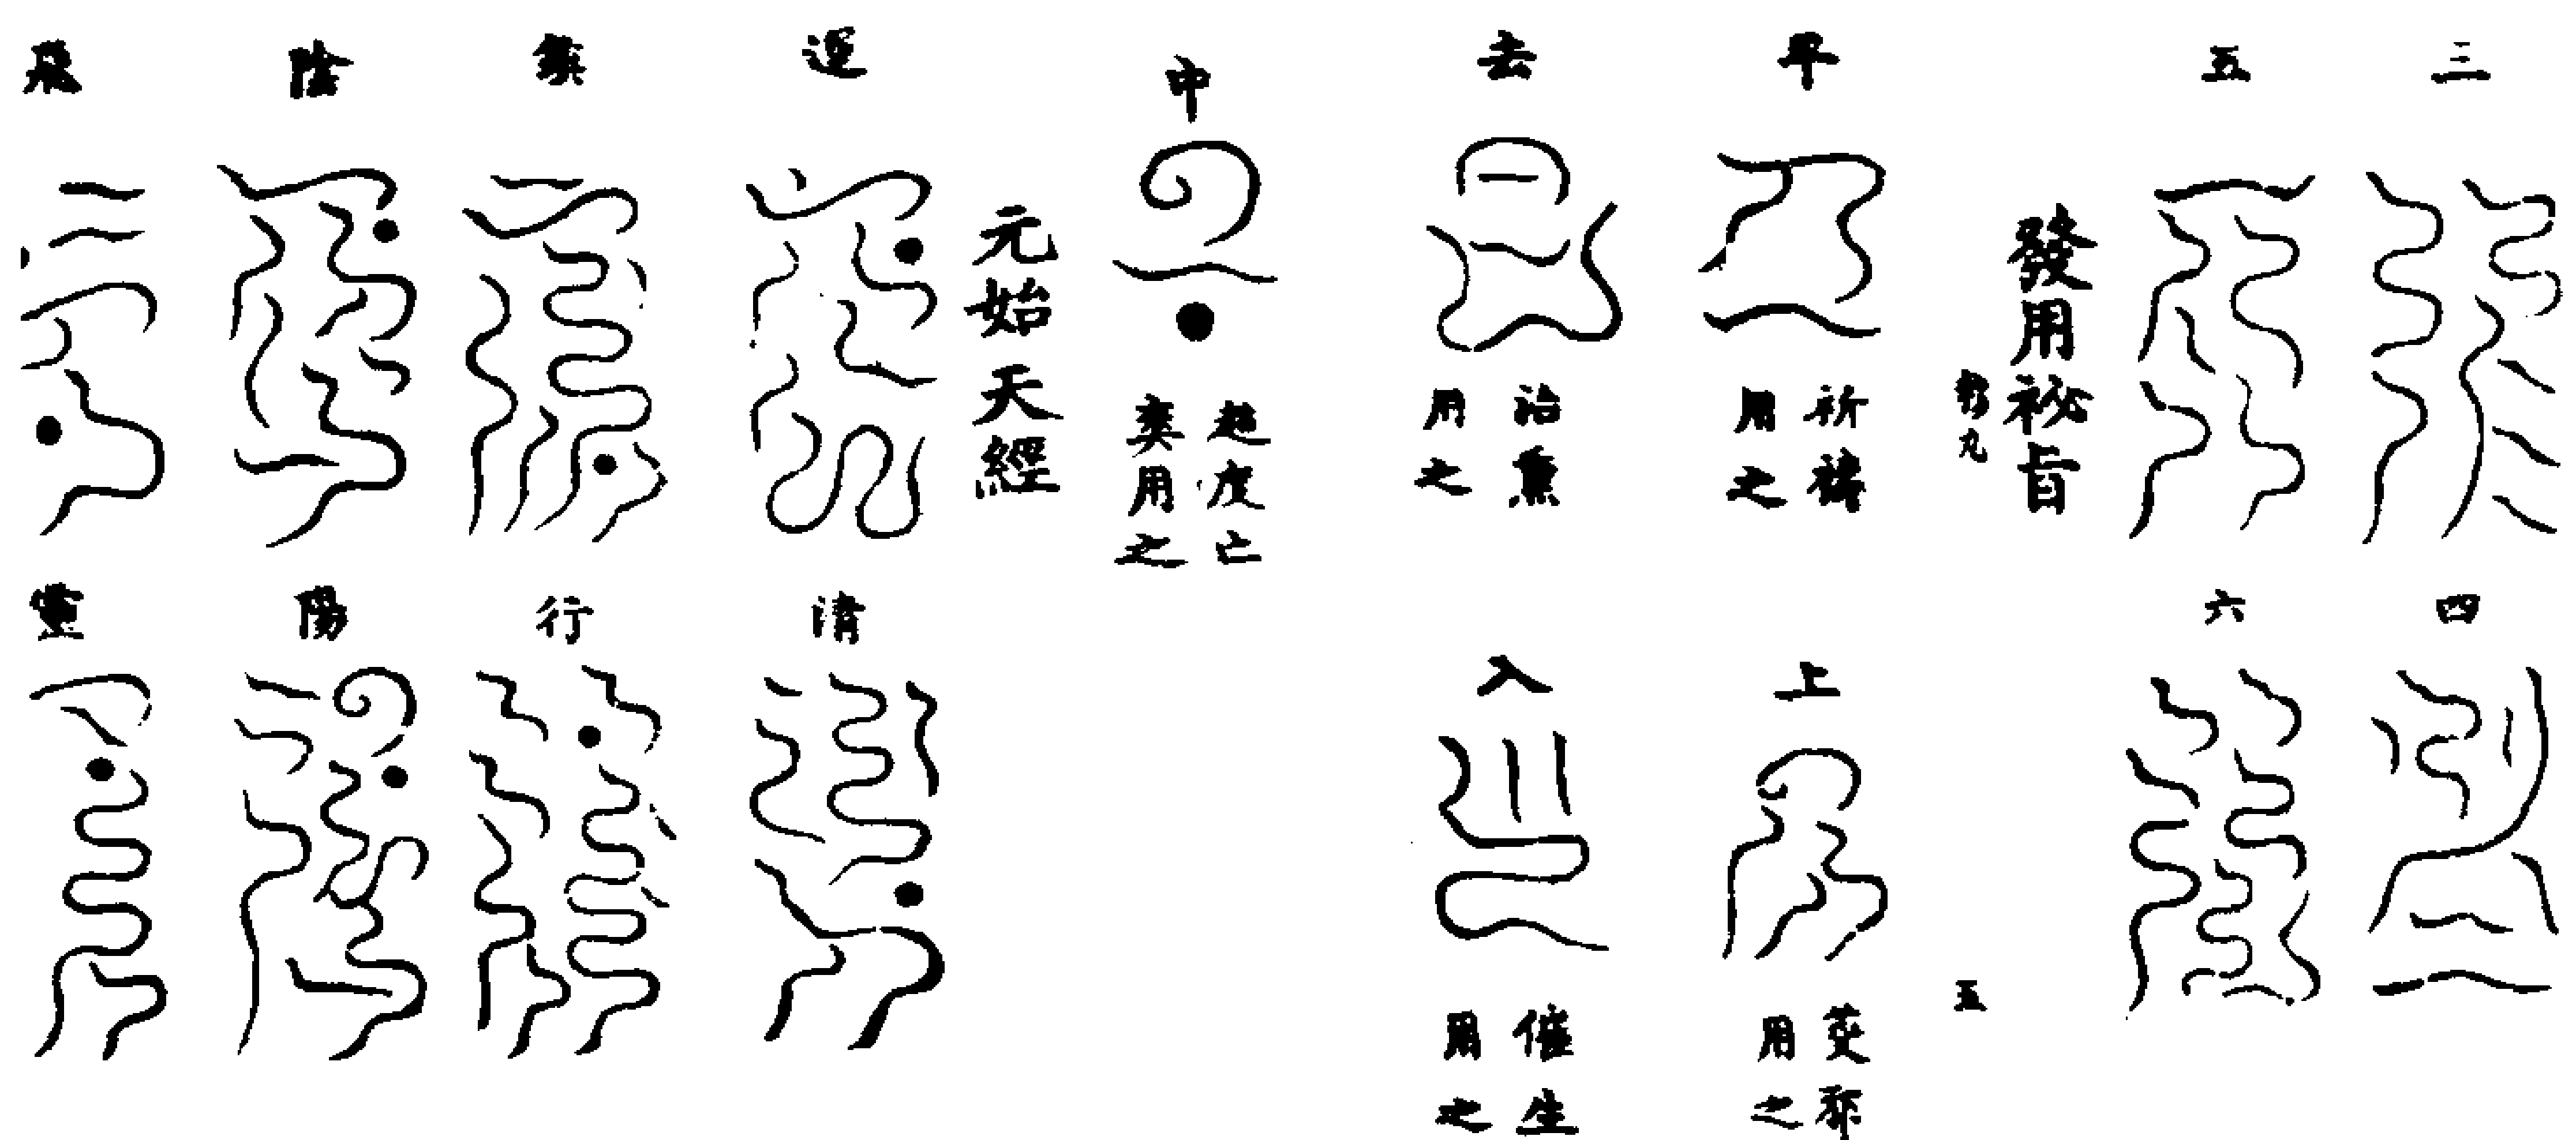 三
四
五
六
發用祕旨
九
五
平
祈禱
用之
上
邪
用之
去
治
用之
入
催生
用之
中
超度亡
爽用之
元始天經
運
清
行
陰
陽
飛
靈